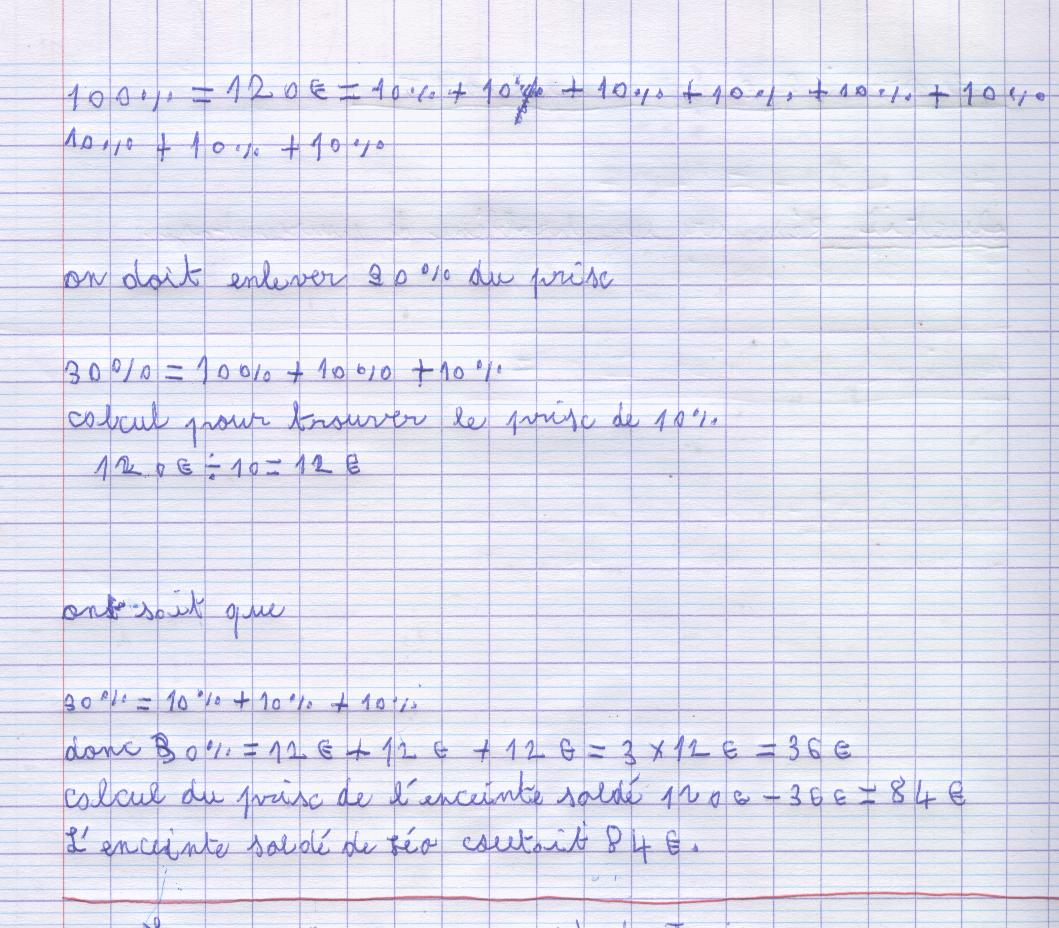 100% = 120€ = 10% + 10% + 10% + 10% + 10% + 10%
10% + 10% + 10%
on doit enlever 30% du prisc
30% = 10% + 10% + 10%
calcul pour trouver le prisc de 10%
120€ ÷ 10 = 12€
ont sait que
30% = 10% + 10% + 10%
donc 30% = 12€ + 12€ + 12€ = 3 × 12€ = 36€
calcul du prisc de l'enceinte soldé 120€ - 36€ = 84€
L'enceinte soldé de Léo coutait 84€.